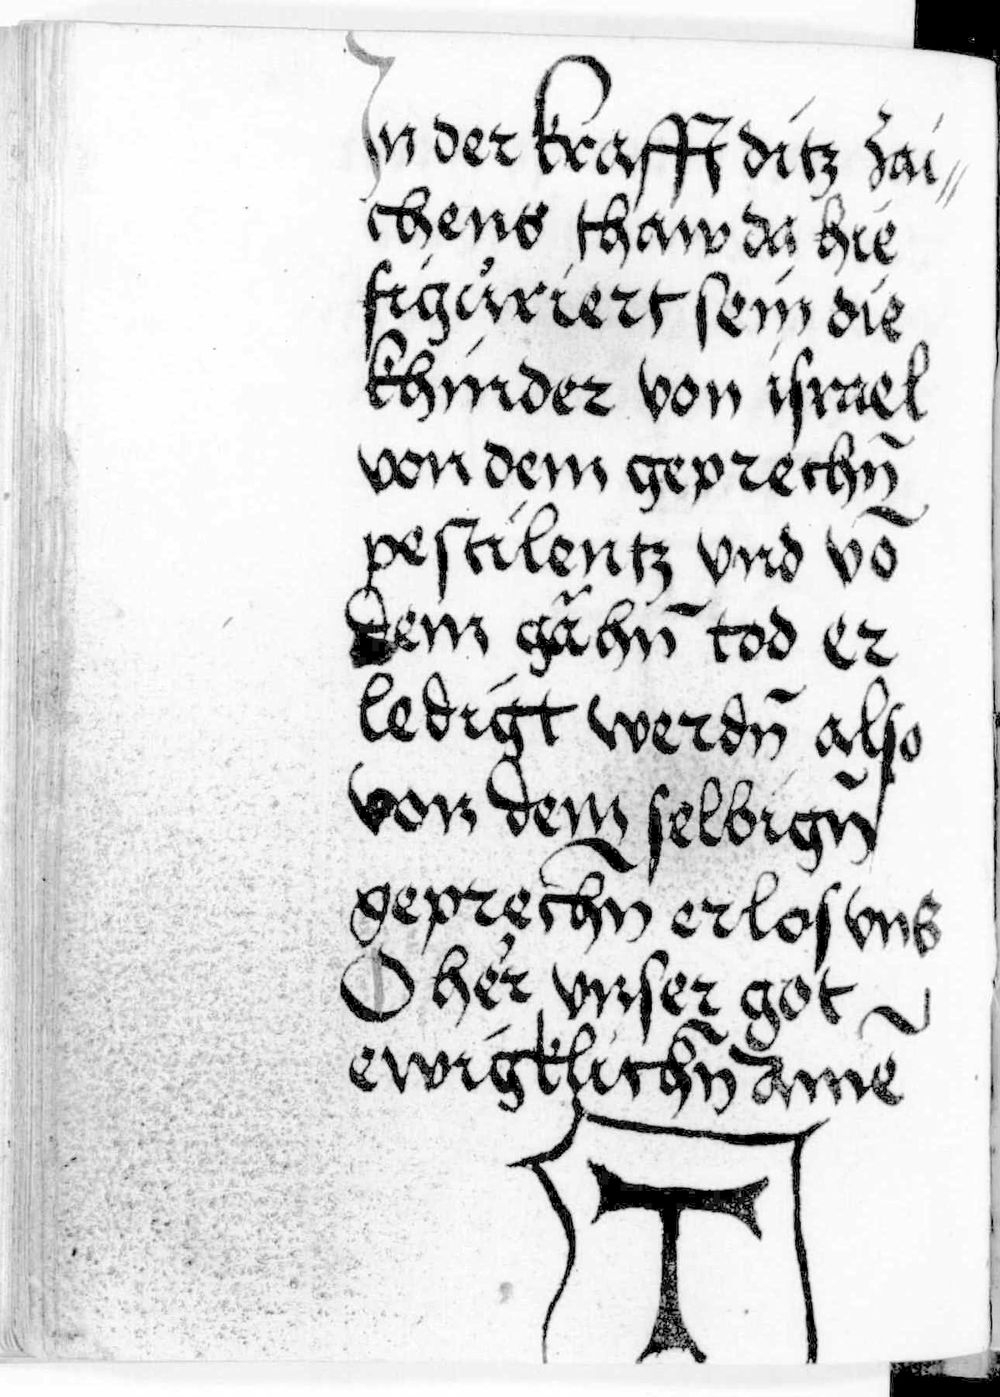 In der krafft ditz zai//
chens thaw da hie
figůriert sein die
khinder von israel
von dem geprechn̄
pestilentz vnd vō
dem gähn̄ tod er
ledigt werdn̄ also
von dem selbign̄
geprechn̄ erlos vns
O her vnser got
ewigklichn̄ amē
T